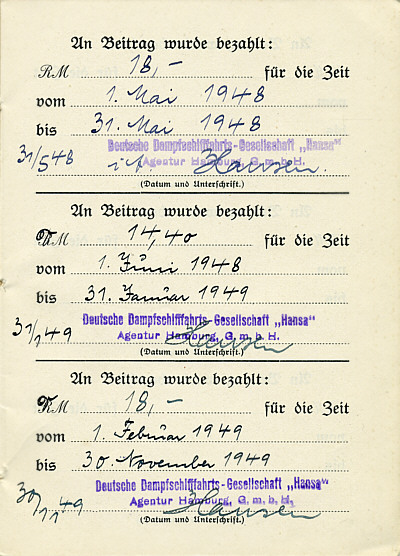 An Beitrag wurde bezahlt:
RM 18,- für die Zeit
vom 1. Mai 1948
bis 31. Mai 1948
Deutsche Dampfschifffahrts-Gesellschaft „Hansa"
31/5 48 Agentur Hamburg, G. m. b. H.
Hansen.
(Datum und Unterschrift.)
An Beitrag wurde bezahlt:
RM 14,40 für die Zeit
vom 1. Juni 1948
bis 31. Januar 1949
Deutsche Dampfschifffahrts-Gesellschaft „Hansa"
31/1 49 Agentur Hamburg, G. m. b. H.
Hansen
(Datum und Unterschrift.)
An Beitrag wurde bezahlt:
RM 18,- für die Zeit
vom 1. Februar 1949
bis 30. November 1949
Deutsche Dampfschifffahrts-Gesellschaft „Hansa"
30/11 49 Agentur Hamburg, G. m. b. H.
Hansen
(Datum und Unterschrift.)